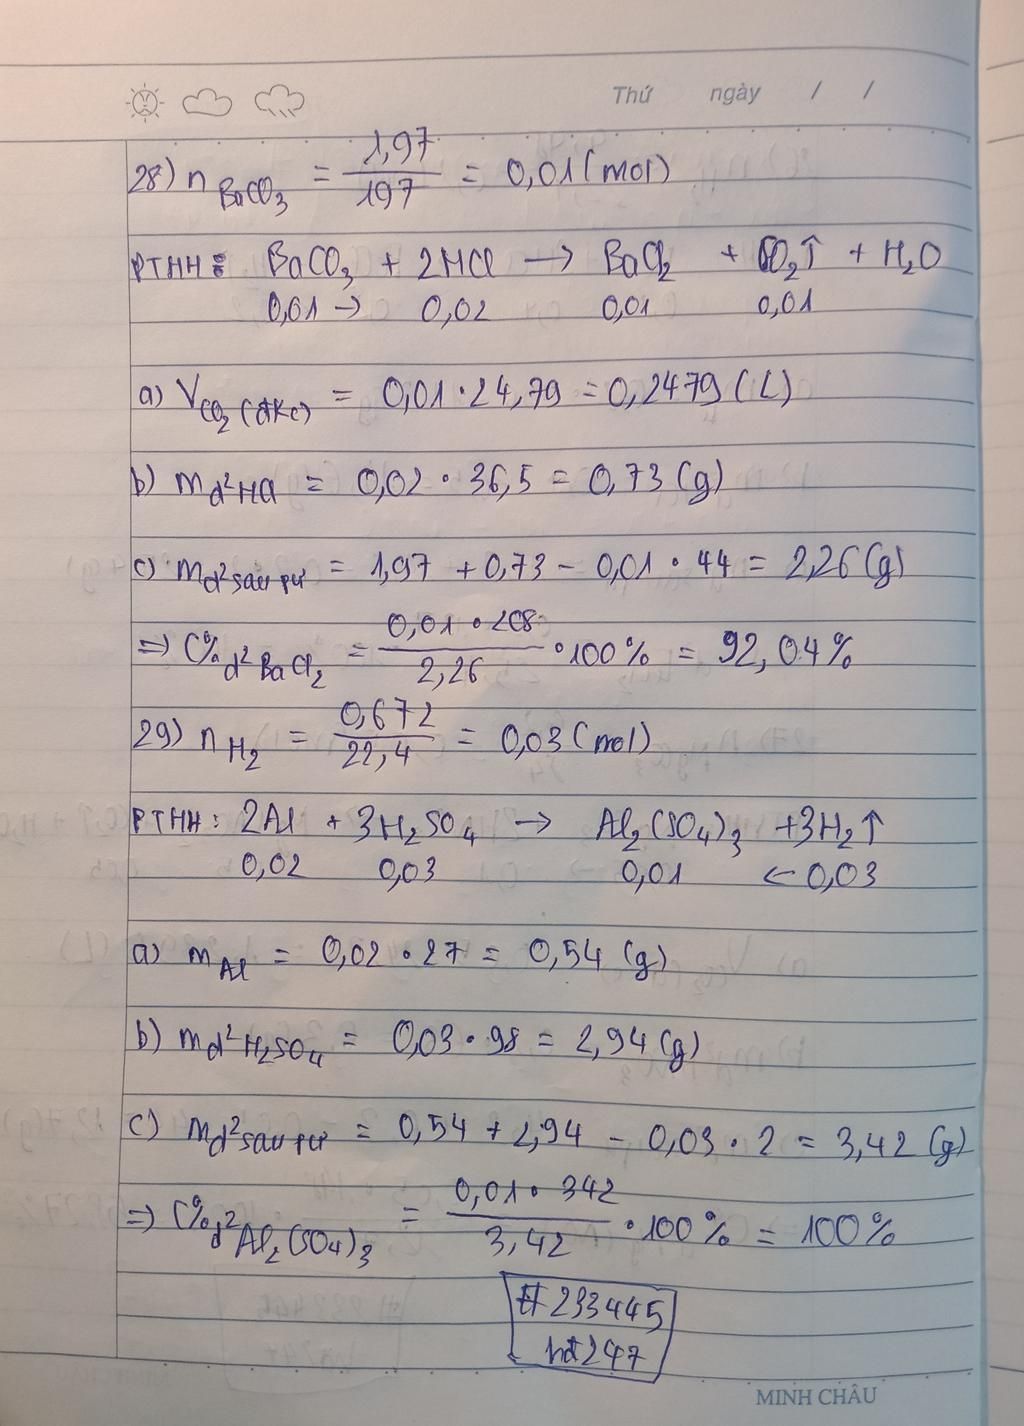 Thứ ngày / /
28) n BaCO3 = 1,97 / 197 = 0,01 (mol)
PTHH: BaCO3 + 2HCl → BaCl2 + CO2↑ + H2O
0,01 → 0,02 0,01 0,01
a) V CO2 (đkc) = 0,01 . 24,79 = 0,2479 (L)
b) m d2 HCl = 0,02 . 36,5 = 0,73 (g)
c) m d2 sau pư = 1,97 + 0,73 - 0,01 . 44 = 2,26 (g)
=> C% d2 BaCl2 = 0,01 . 208 / 2,26 . 100% = 92,04%
29) n H2 = 0,672 / 22,4 = 0,03 (mol)
PTHH: 2Al + 3H2SO4 → Al2(SO4)3 + 3H2↑
0,02 0,03 0,01 ← 0,03
a) m Al = 0,02 . 27 = 0,54 (g)
b) m d2 H2SO4 = 0,03 . 98 = 2,94 (g)
c) m d2 sau pư = 0,54 + 2,94 - 0,03 . 2 = 3,42 (g)
=> C% d2 Al2(SO4)3 = 0,01 . 342 / 3,42 . 100% = 100%
#233445
hd247
MINH CHÂU